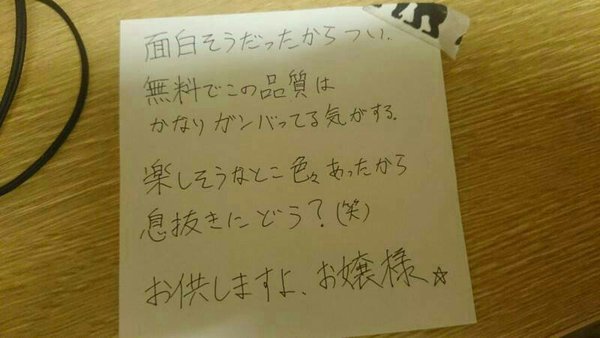 面白そうだったからつい.
無料でこの品質は
かなりガンバってる気がする.
楽しそうなとこ色々あったから
息抜きにどう?(笑)
お供しますよ、お嬢様☆